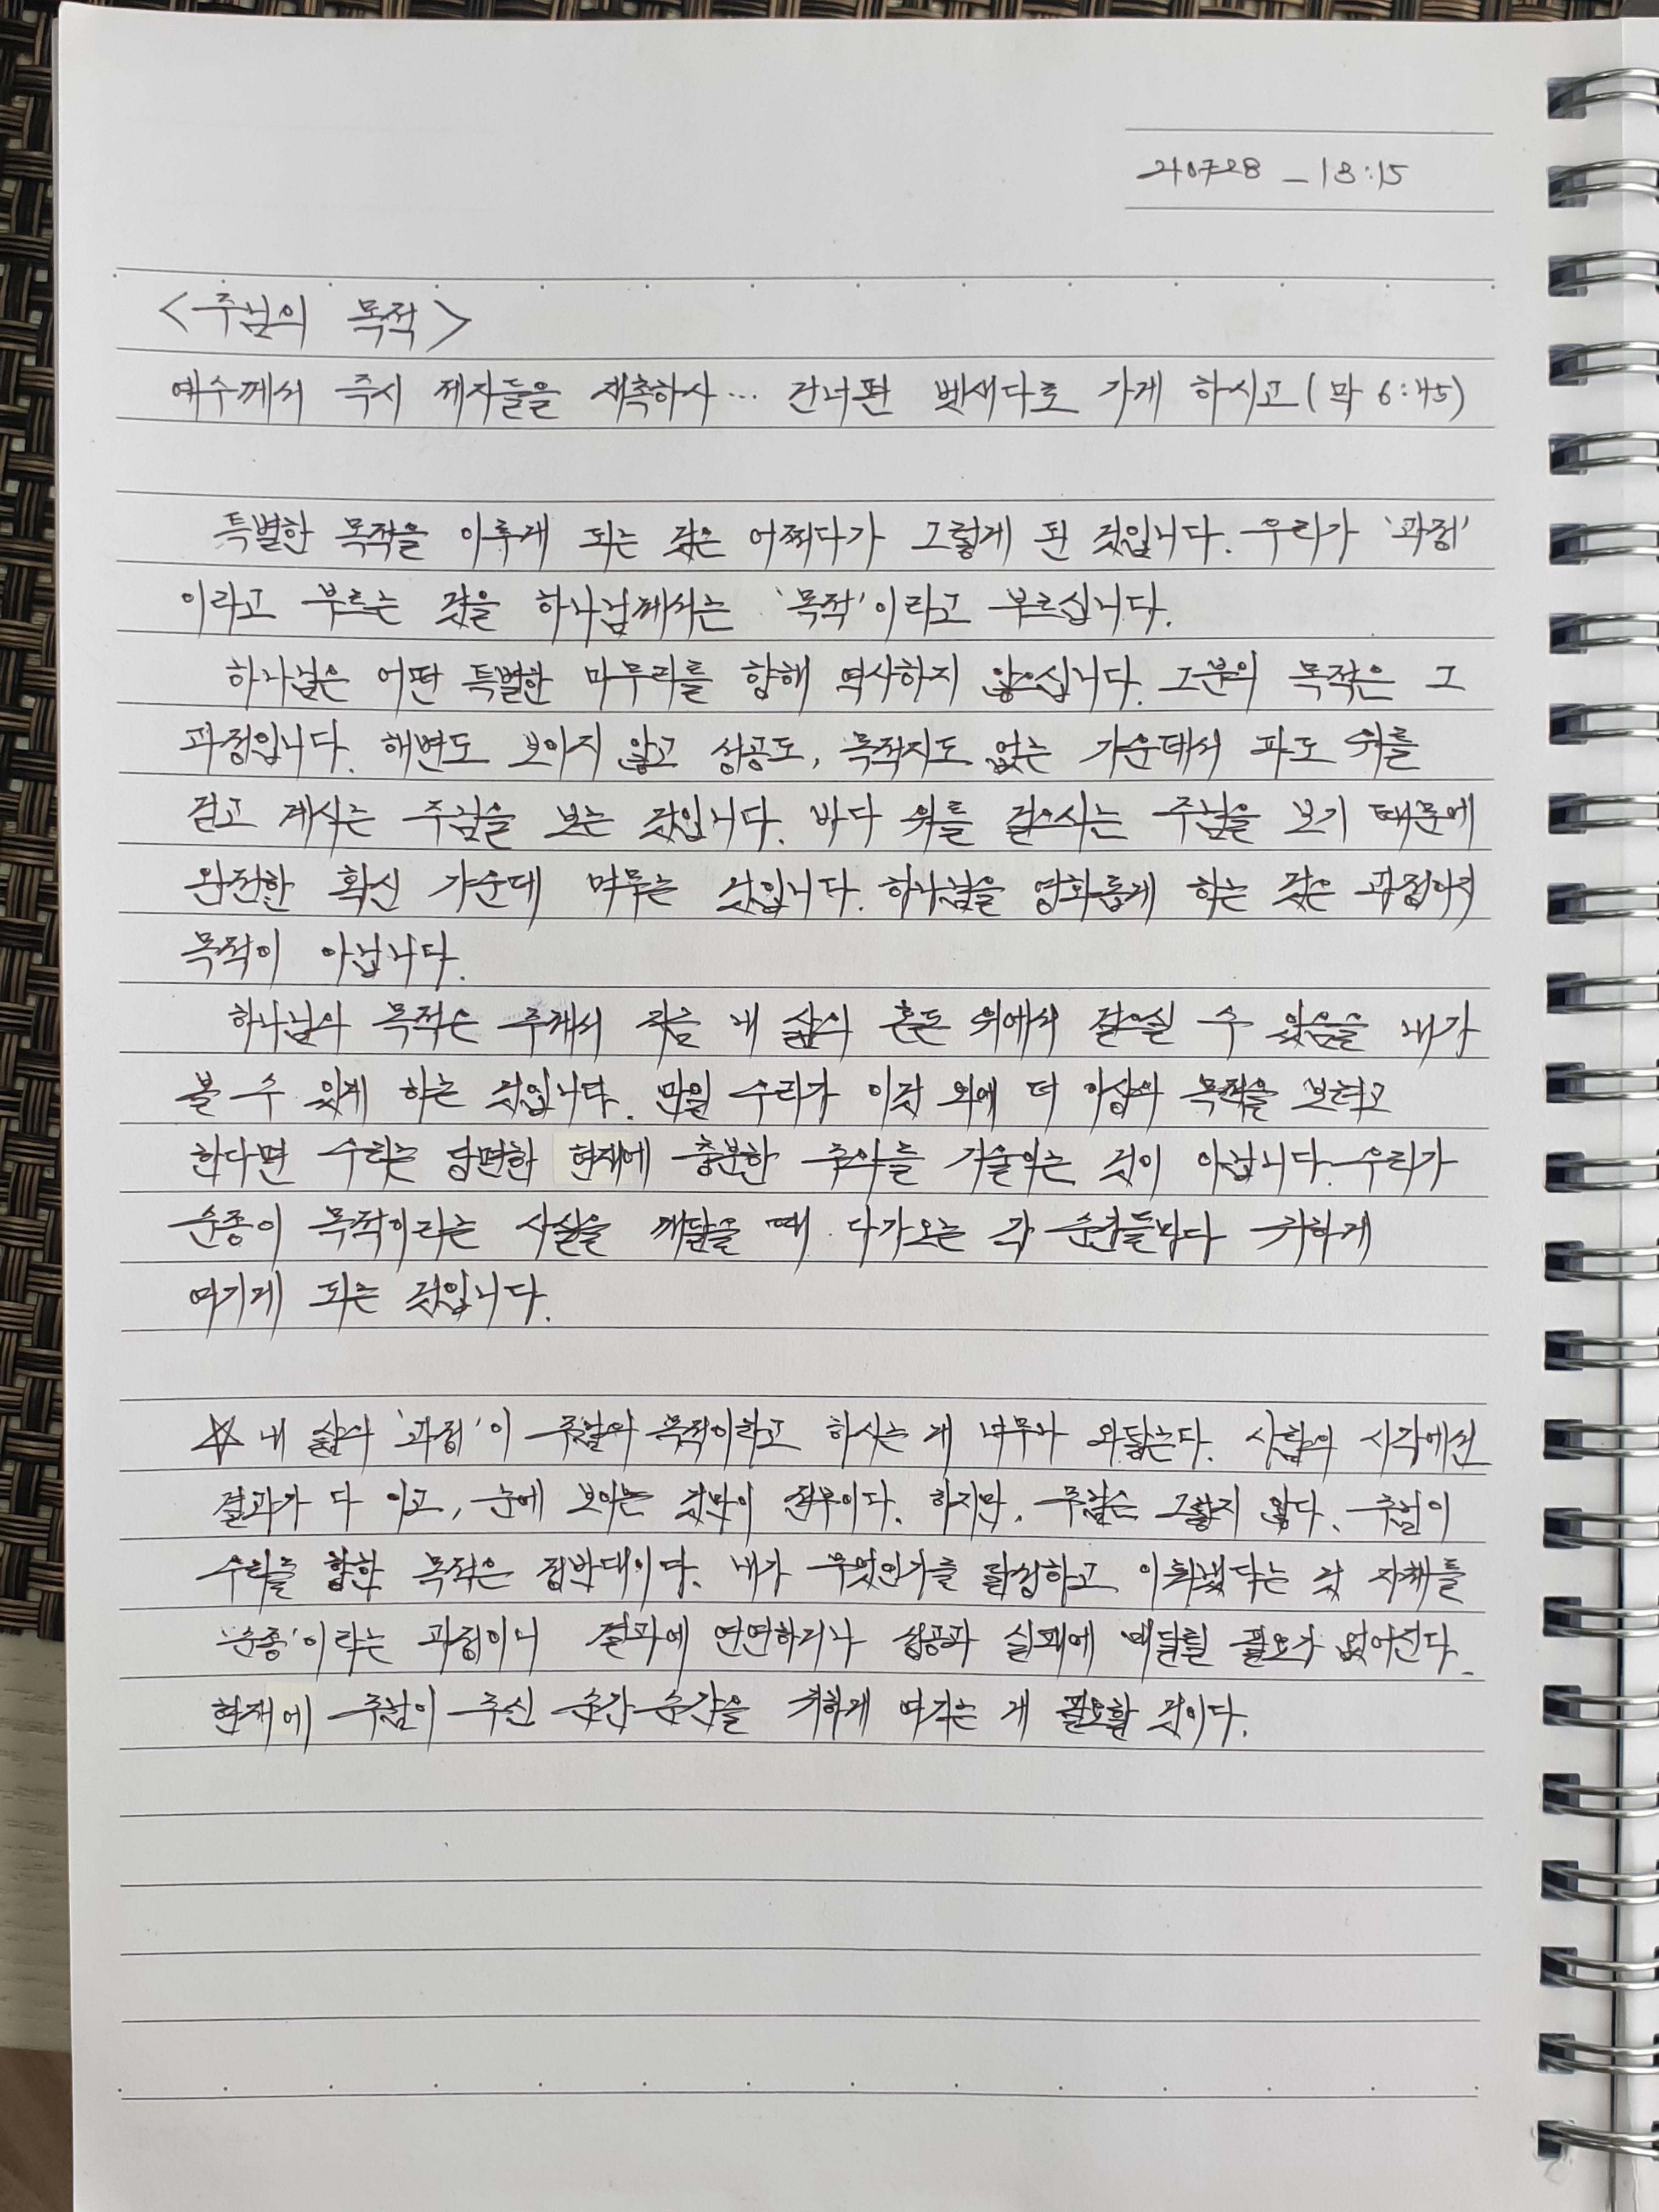 210728 - 18:15
<주님의 목적>
예수께서 즉시 제자들을 재촉하사... 건너편 벳새다로 가게 하시고(막 6:45)
특별한 목적을 이루게 되는 것은 어쩌다가 그렇게 된 것입니다. 우리가 '과정'
이라고 부르는 것을 하나님께서는 '목적'이라고 부르십니다.
하나님은 어떤 특별한 마무리를 향해 역사하지 않으십니다. 그분의 목적은 그
과정입니다. 해변도 보이지 않고 성공도, 목적지도 없는 가운데서 파도 위를
걷고 계시는 주님을 보는 것입니다. 바다 위를 걸으시는 주님을 보기 때문에
완전한 확신 가운데 머무는 것입니다. 하나님을 영화롭게 하는 것은 과정이지
목적이 아닙니다.
하나님의 목적은 주께서 지금 내 삶의 혼돈 위에서 걸으실 수 있음을 내가
볼 수 있게 하는 것입니다. 만일 우리가 이것 외에 더 이상의 목적을 보려고
한다면 우리는 당면한 현재에 충분한 주의를 기울이는 것이 아닙니다. 우리가
순종이 목적이라는 사실을 깨달을 때 다가오는 각 순간들마다 귀하게
여기게 되는 것입니다.
☆ 내 삶의 '과정'이 주님의 목적이라고 하시는 게 너무나 와닿는다. 사람의 시각에선
결과가 다 이고, 눈에 보이는 것만이 전부이다. 하지만, 주님은 그렇지 않다. 주님이
우리를 향한 목적은 정반대이다. 내가 무엇인가를 결정하고 이뤄냈다는 것 자체를
'순종'이라는 과정이니 결과에 연연하거나 성공과 실패에 매달릴 필요가 없어진다.
현재에 주님이 주신 순간순간을 귀하게 여기는 게 필요할 것이다.